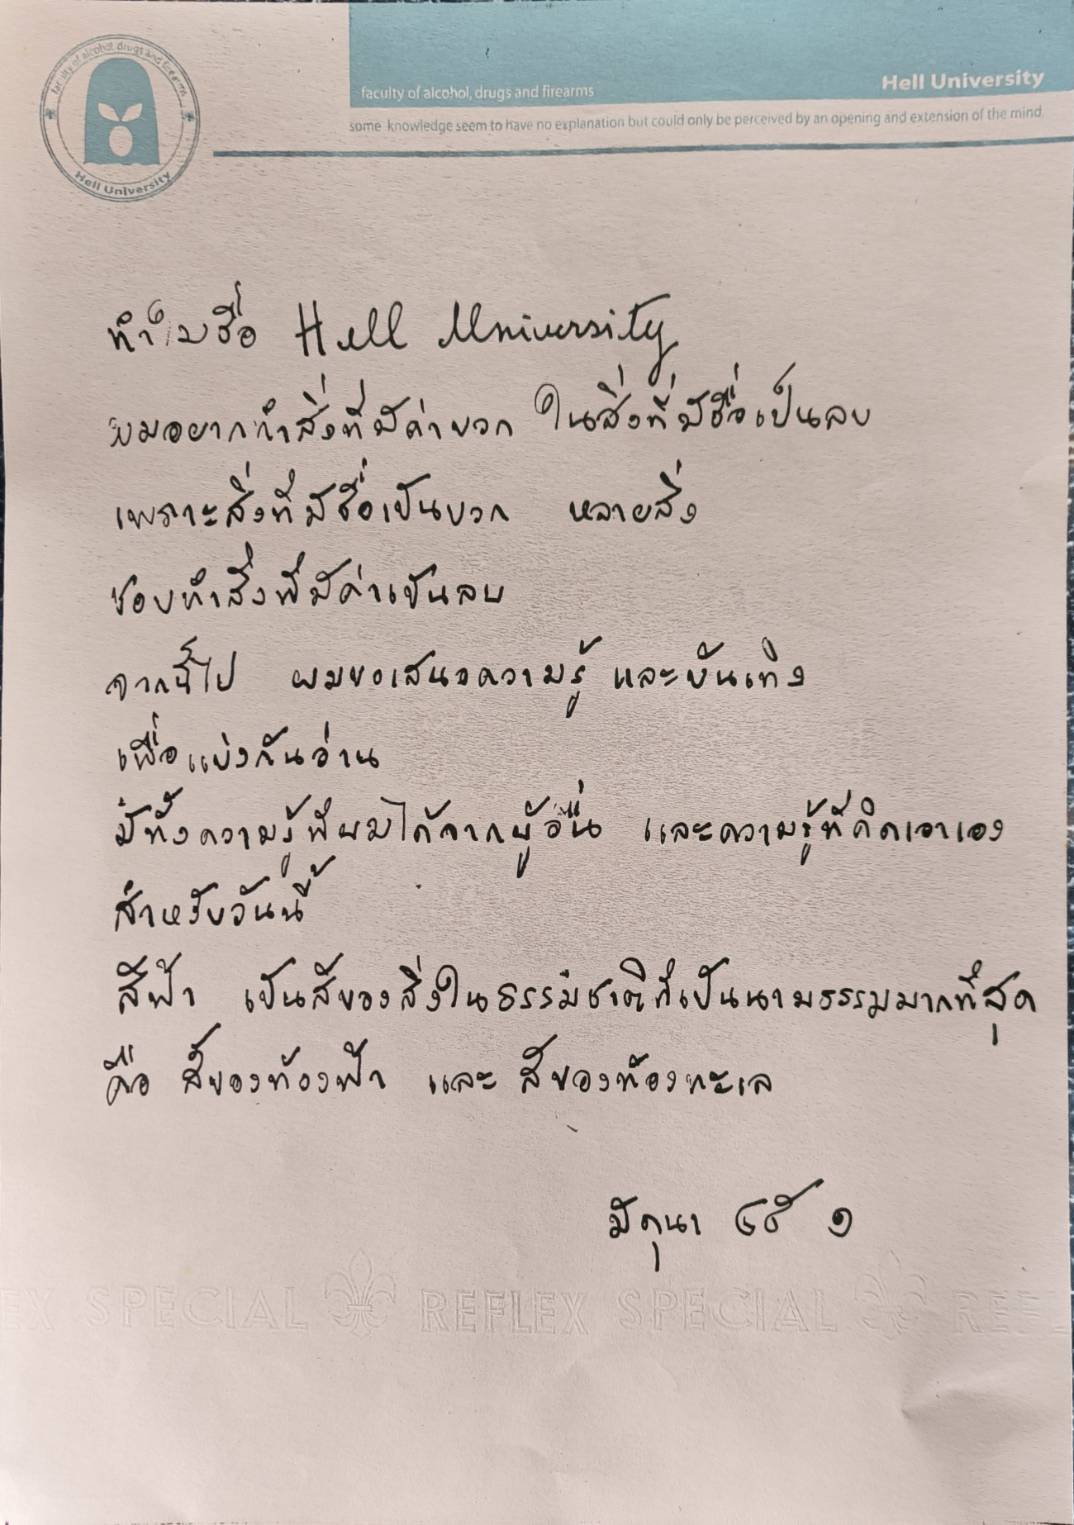 faculty of alcohol, drugs and firearms
Hell University
faculty of alcohol, drugs and firearms
Hell University
some knowledge seem to have no explanation but could only be perceived by an opening and extension of the mind.
ทำไมชื่อ Hell University
ผมอยากทำสิ่งที่มีค่าบวก ในสิ่งที่มีชื่อเป็นลบ
เพราะสิ่งที่มีชื่อเป็นบวก หลายสิ่ง
ชอบทำสิ่งที่มีค่าเป็นลบ
จากนี้ไป ผมขอเสนอความรู้ และบันเทิง
เพื่อแบ่งกันอ่าน
มีทั้งความรู้ที่ผมได้จากผู้อื่น และความรู้ที่คิดเอาเอง
สำหรับวันนี้
สีฟ้า เป็นสีของสิ่งในธรรมชาติที่เป็นนามธรรมมากที่สุด
คือ สีของท้องฟ้า และ สีของท้องทะเล
มิถุนา ๔๕ ๑
SPECIAL REFLEX SPECIAL